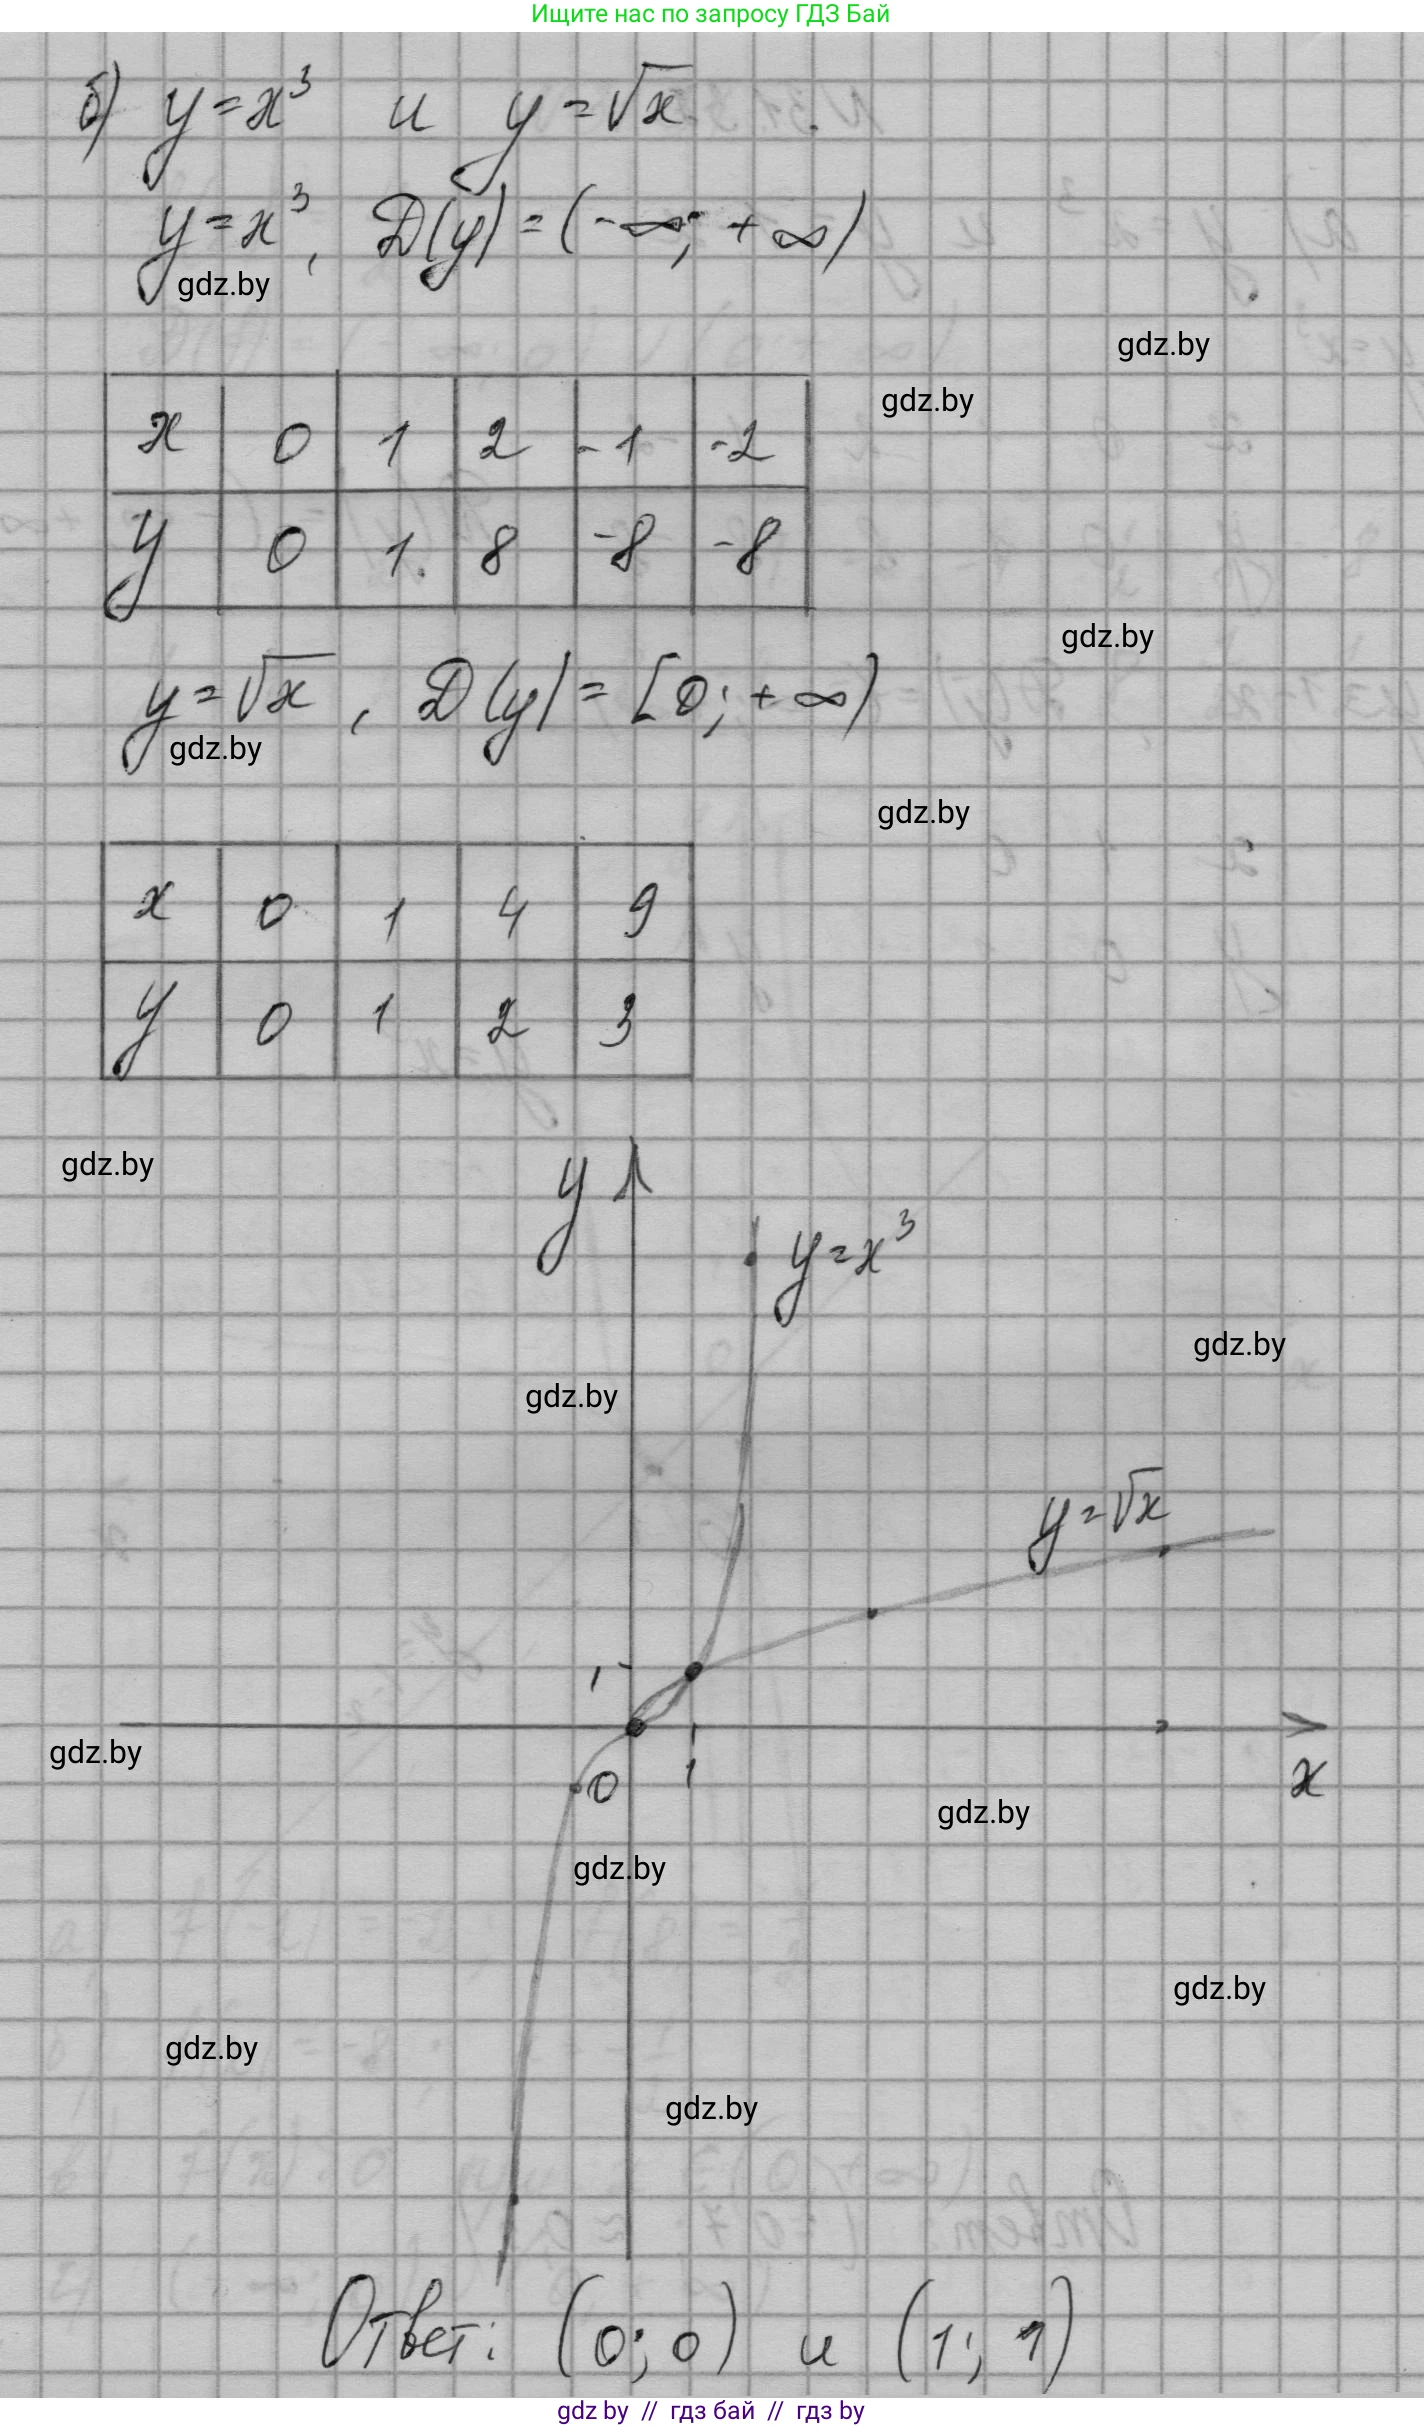 Ищите нас по запросу ГДЗ Бай
б) y=x³ и y=√x.
y=x³, D(y)=(-∞; +∞)
gdz.by
gdz.by
gdz.by
x 0 1 2 -1 -2
y 0 1. 8 -8 -8
gdz.by
y=√x, D(y)=[0; +∞)
gdz.by
gdz.by
x 0 1 4 9
y 0 1 2 3
gdz.by
y
y=x³
gdz.by
gdz.by
y=√x
1
gdz.by
0 1 x
gdz.by
gdz.by
gdz.by
gdz.by
gdz.by
Ответ: (0; 0) и (1; 1)
gdz by // гдз бай // гдз by